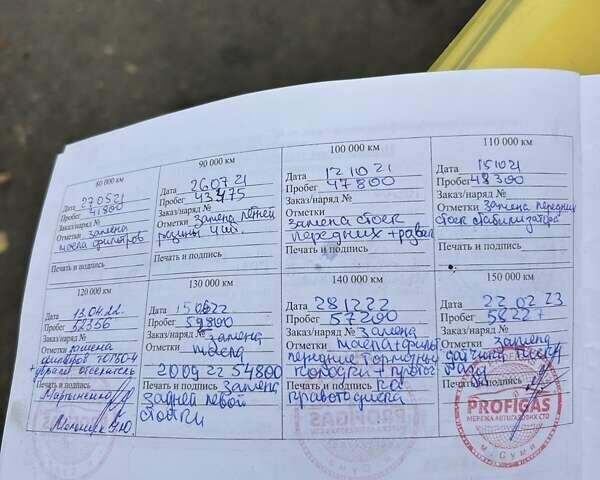 80 000 км
Дата 27.05.21
Пробег 41800
Заказ/наряд №
Отметки замена
масла фильтров
Печать и подпись
90 000 км
Дата 26.07.21
Пробег 43475
Заказ/наряд №
Отметки замена летней
резины
Печать и подпись
100 000 км
Дата 12.10.21
Пробег 47800
Заказ/наряд №
Отметки
замена стоек
передних +
Печать и подпись
110 000 км
Дата 15.10.21
Пробег 48300
Заказ/наряд №
Отметки замена передних
стоек стабилизатора
Печать и подпись
120 000 км
Дата 13.04.22
Пробег 52356
Заказ/наряд №
Отметки
Печать и подпись
130 000 км
Дата
Пробег
Заказ/наряд №
Отметки замена
масла
20.09.22 54800
Печать и подпись замена
задней левой
стойки
140 000 км
Дата 28.12.22
Пробег 57200
Заказ/наряд № замена
Отметки масла+
передние тормозные
колодки +
Печать и подпись
правого диска
150 000 км
Дата 22.02.23
Пробег 58227
Заказ/наряд №
Отметки замена
датчика
Печать и подпись
PROFIGAS
МЕРЕЖА АВТОГАЗОВИХ СТО
м. СУМИ